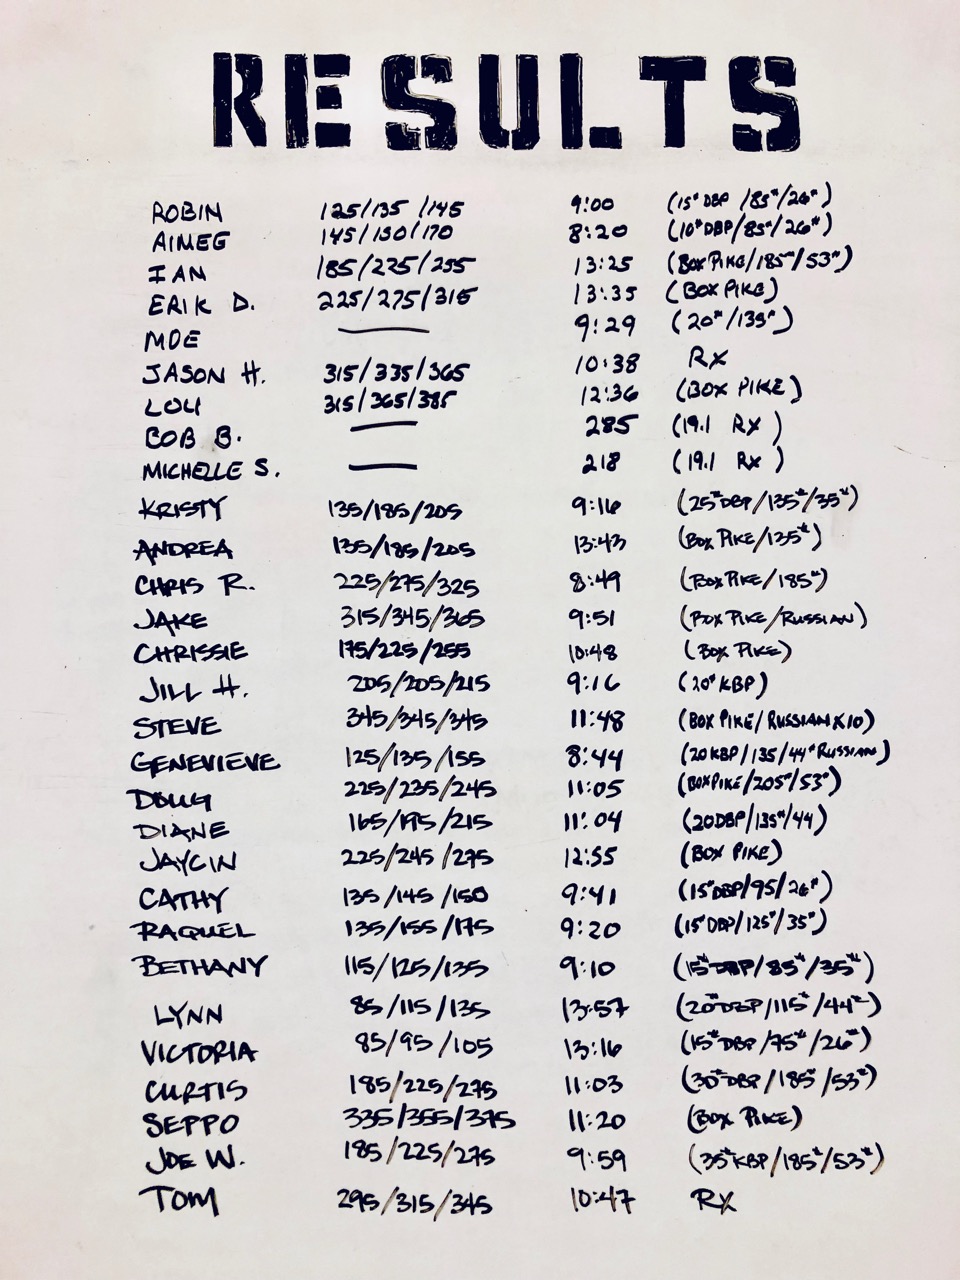 RESULTS
ROBIN 125/135/145 9:00 (15# DBP/85#/26#)
AIMEE 145/150/170 8:20 (10# DBP/85#/26#)
IAN 185/225/255 13:25 (BOX PIKE/185#/53#)
ERIK D. 225/275/315 13:35 (BOX PIKE)
MOE — 9:29 (20#/135#)
JASON H. 315/335/365 10:38 RX
LOU 315/365/385 12:36 (BOX PIKE)
BOB B. — 285 (19.1 RX)
MICHELLE S. — 218 (19.1 RX)
KRISTY 135/185/205 9:16 (25# DBP/135#/35#)
ANDREA 135/185/205 13:43 (BOX PIKE/135#)
CHRIS R. 225/275/325 8:49 (BOX PIKE/185#)
JAKE 315/345/365 9:51 (BOX PIKE/RUSSIAN)
CHRISSIE 175/225/255 10:48 (BOX PIKE)
JILL H. 205/205/215 9:16 (20# KBP)
STEVE 345/345/345 11:48 (BOX PIKE/RUSSIAN X10)
GENEVIEVE 125/135/155 8:44 (20 KBP/135/44# RUSSIAN)
DOUG 225/235/245 11:05 (BOX PIKE/205#/53#)
DIANE 165/195/215 11:04 (20 DBP/135#/44)
JAYCIN 225/245/275 12:55 (BOX PIKE)
CATHY 135/145/150 9:41 (15# DBP/95/26#)
RAQUEL 135/155/175 9:20 (15# DBP/125#/35#)
BETHANY 115/125/135 9:10 (15# DBP/85#/35#)
LYNN 85/115/135 13:57 (20# DBP/115#/44#)
VICTORIA 85/95/105 13:16 (15# DBP/75#/26#)
CURTIS 185/225/275 11:03 (30# DBP/185#/53#)
SEPPO 335/355/375 11:20 (BOX PIKE)
JOE W. 185/225/275 9:59 (35# KBP/185#/53#)
TOM 295/315/345 10:47 RX